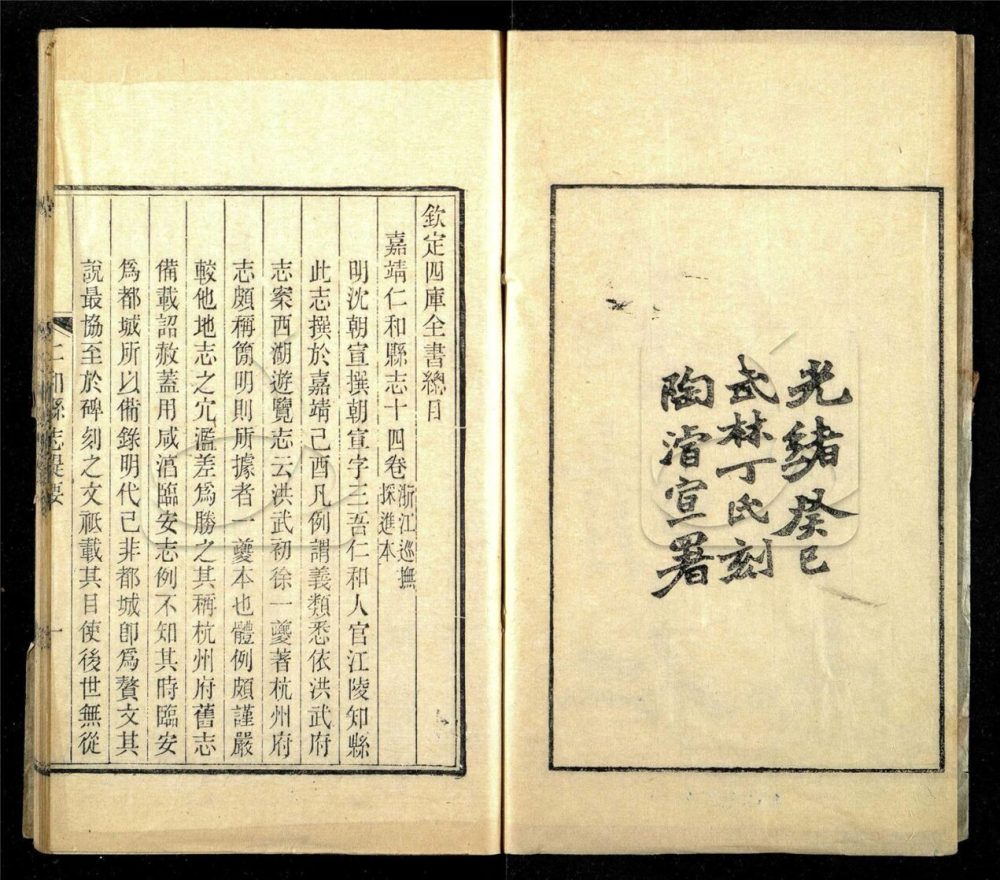 光緒癸巳
武林丁氏刻
陶濬宣署
欽定四庫全書總目
嘉靖仁和縣志十四卷浙江巡撫採進本
明沈朝宣撰朝宣字三吾仁和人官江陵知縣
此志撰於嘉靖己酉凡例謂義類悉依洪武府
志案西湖遊覽志云洪武初徐一夔著杭州府
志頗稱簡明則所據者一夔本也體例頗謹嚴
較他地志之冗濫差爲勝之其稱杭州府舊志
備載詔赦蓋用咸淳臨安志例不知其時臨安
爲都城所以備錄明代已非都城卽爲贅文其
說最協至於碑刻之文祇載其目使後世無從
仁和縣志提要
一